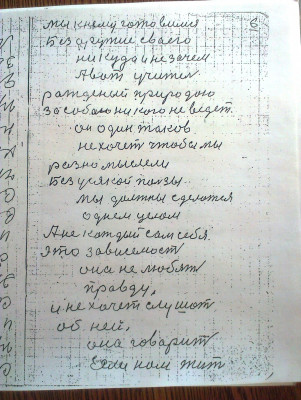 мы к нему готовимся
6
Без друтие сваего
никуда и не зачем
А вот учител
рожденый природою
За собою никого не ведет.
он один таков
не хочет чтобы мы
разно мыслели
Без усякой ползы.
мы должны сделатся
однем целом
А не каждый сам себя
Это зависемост
она не любят
правду,
и не хочет слушат
об ней,
она говарит
Если нам жит